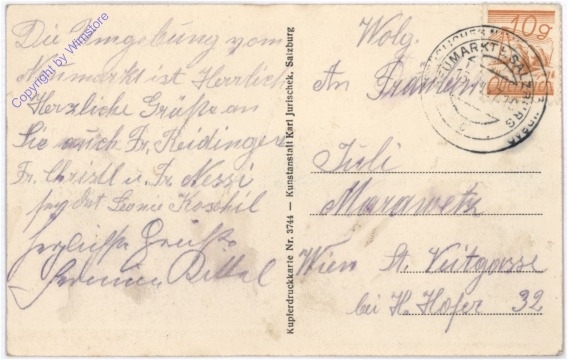 Die Umgebung vom
Neumarkt ist Herrlich
Herzliche Grüße an
Sie auch Fr. Reidinger
Fr. Christl u. Fr. Nessi
sendet Leonie
herzlichste Grüße
Copyright by Winistore
Kupferdruckkarte Nr. 3744 — Kunstanstalt Karl Jurischek, Salzburg
10g
NEUMARKT b. SALZBURG
Wolg.
An Fräulein
Juli
Marawetz
Wien St. Veitgasse
bei H. Hofer 32